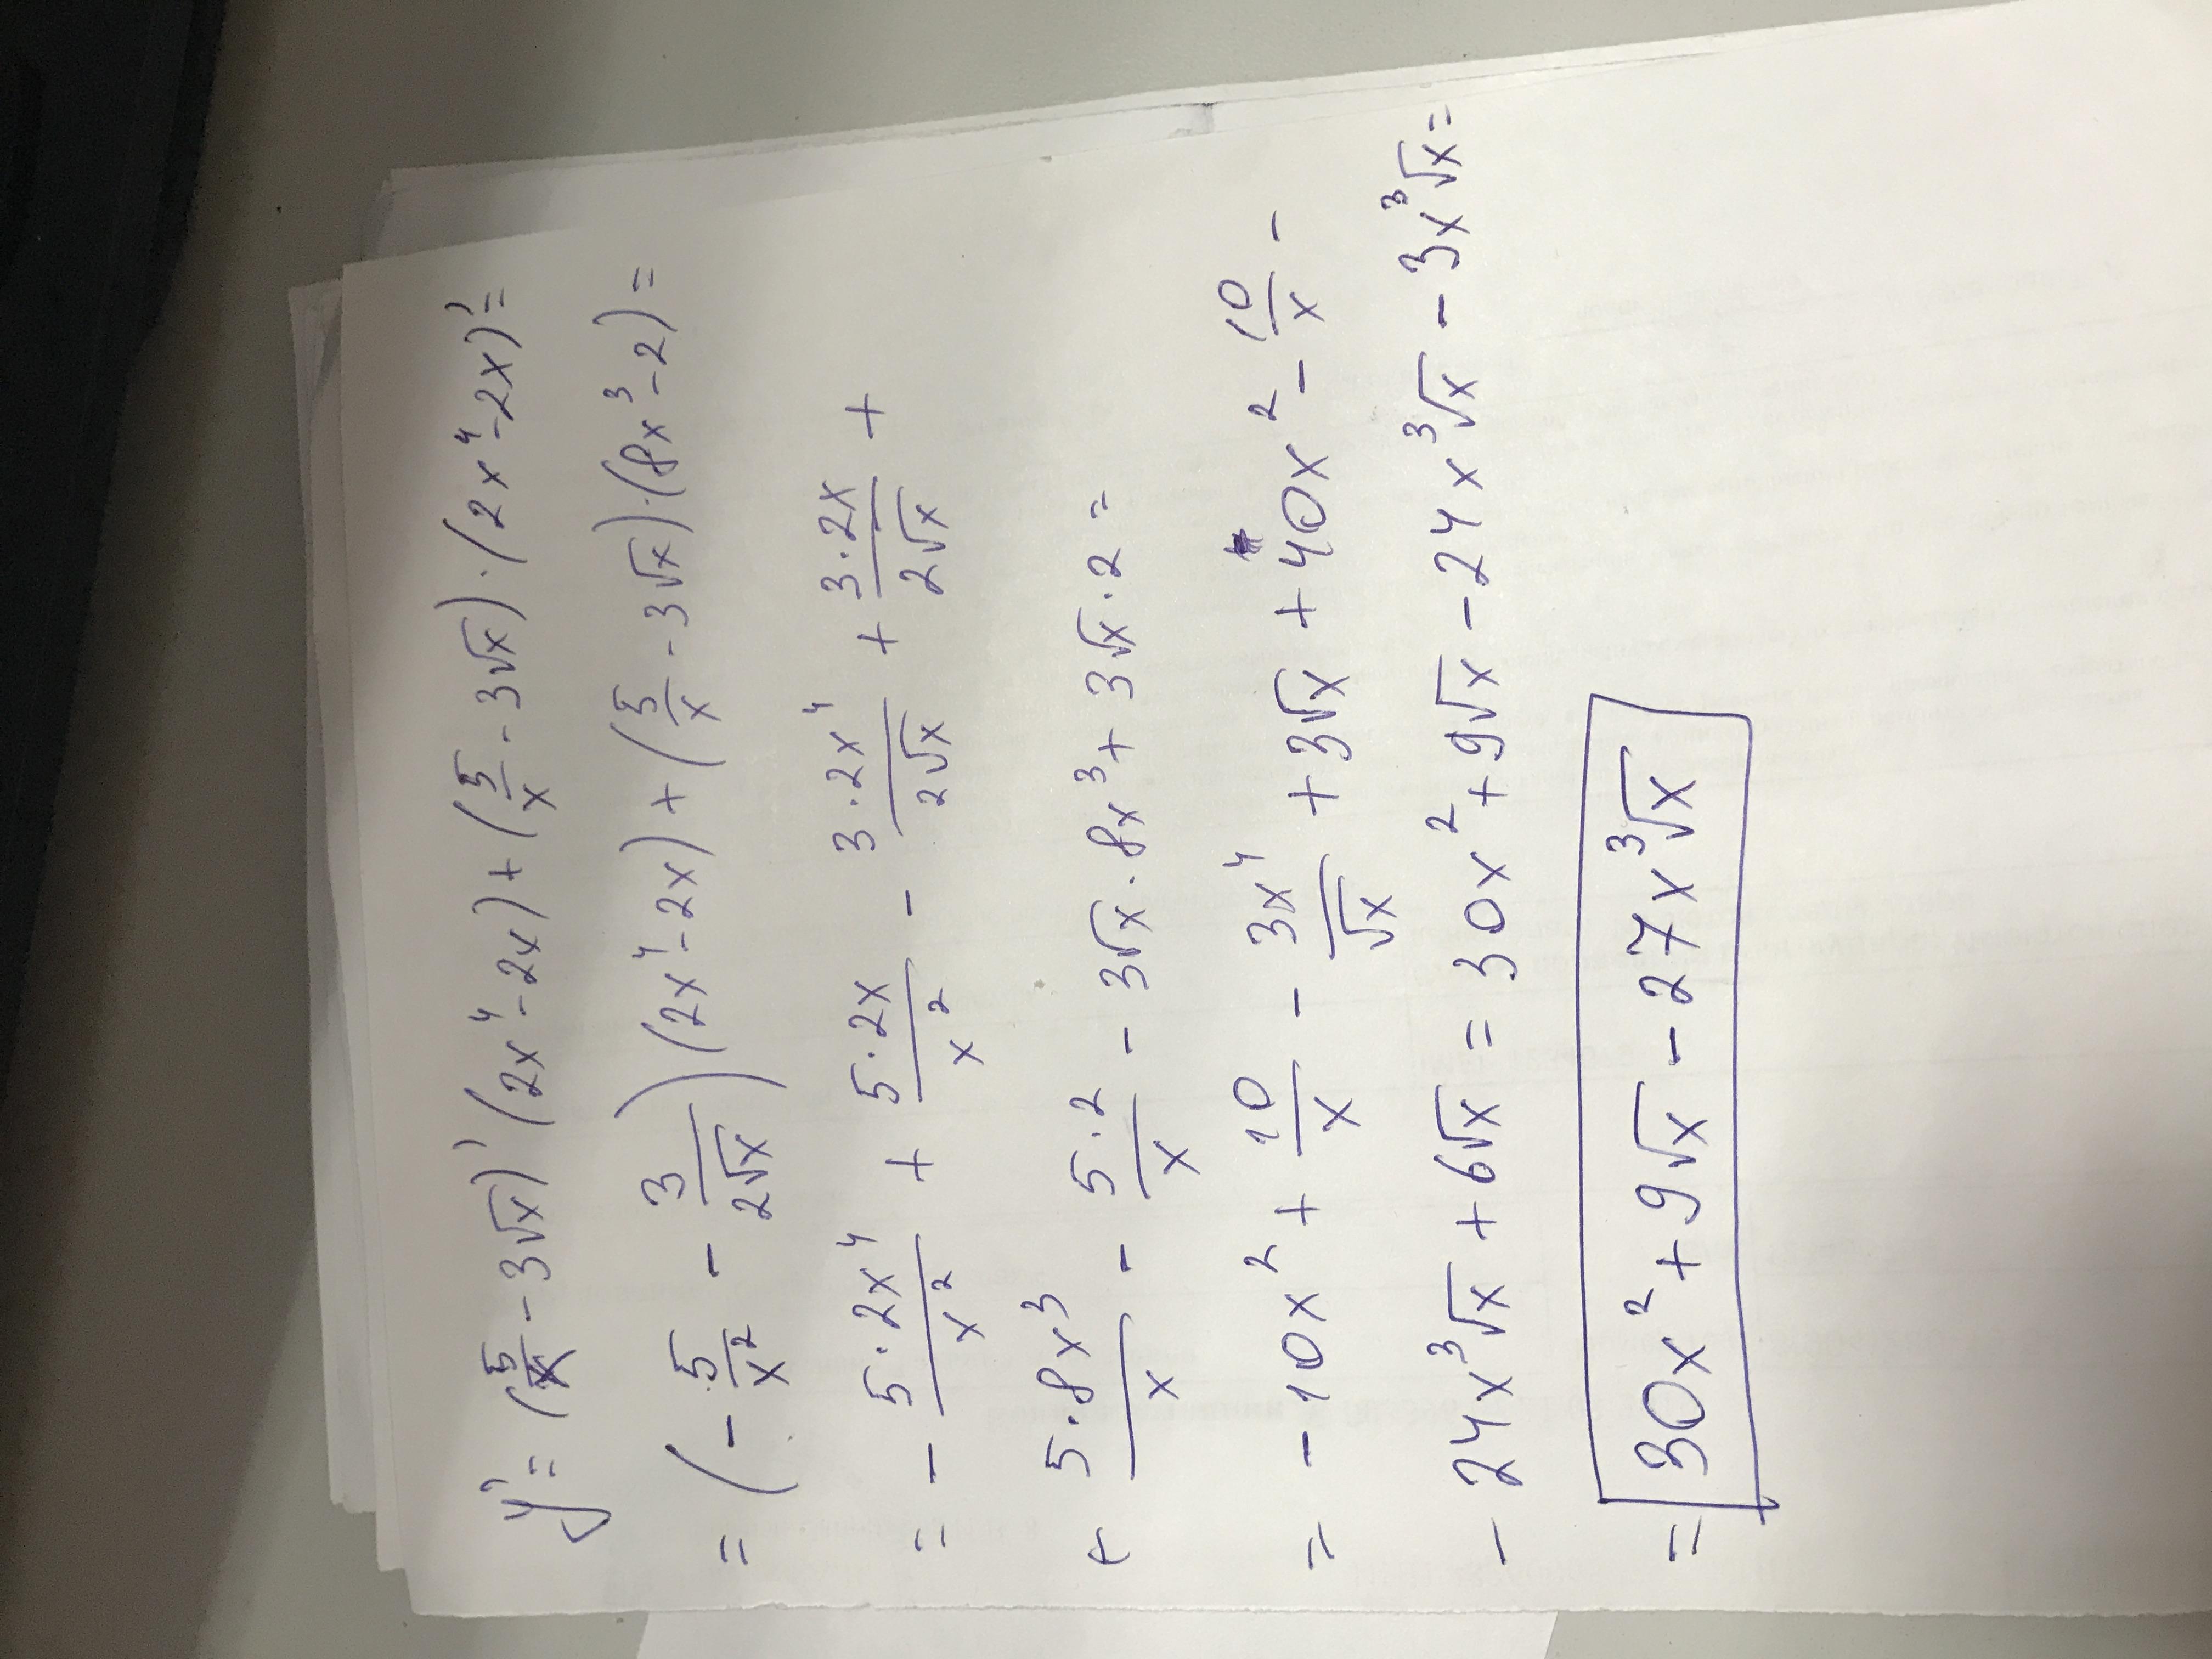 y' = (5/x - 3√x)' (2x⁴ - 2x) + (5/x - 3√x) · (2x⁴ - 2x)' =
= (- 5/x² - 3/(2√x)) (2x⁴ - 2x) + (5/x - 3√x) · (8x³ - 2) =
= - (5·2x⁴)/x² + (5·2x)/x² - (3·2x⁴)/(2√x) + (3·2x)/(2√x) +
+ (5·8x³)/x - (5·2)/x - 3√x · 8x³ + 3√x · 2 =
= - 10x² + 10/x - 3x⁴/√x + 3√x + 40x² - 10/x -
- 24x³√x + 6√x = 30x² + 9√x - 24x³√x - 3x³√x =
= 30x² + 9√x - 27x³√x